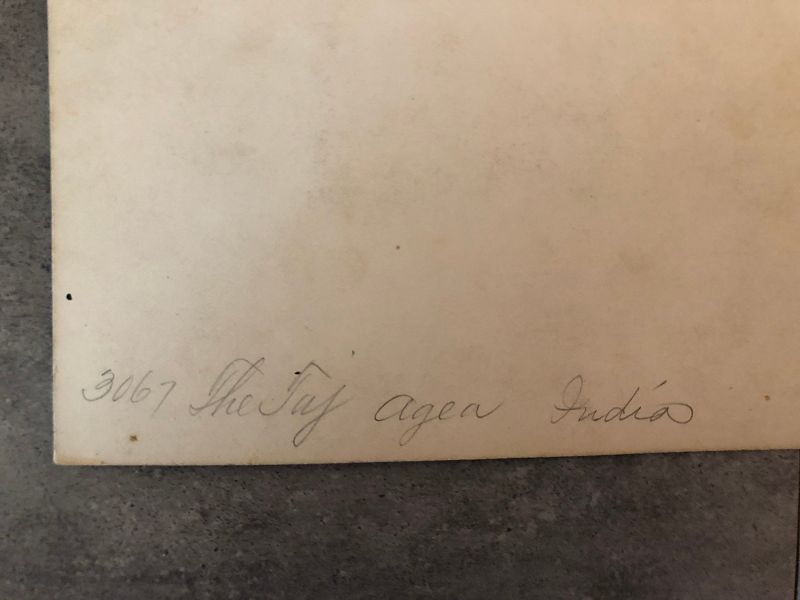 3067 The Taj agea India